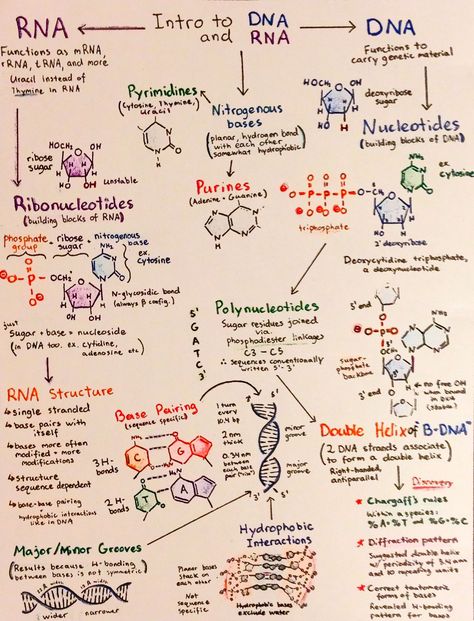 RNA
Intro to DNA
and RNA
DNA
Functions as mRNA,
rRNA, tRNA, and more
Uracil instead of
Thymine in RNA
Functions to
carry genetic material
Pyrimidines
(Cytosine, Thymine,
Uracil)
Nitrogenous
bases
(planar, hydrogen bond
with each other
somewhat hydrophobic)
HOCH₂
OH
OH
deoxyribose
sugar
Nucleotides
(building blocks of DNA)
ribose
sugar
HOCH₂
OH
OH
OH
unstable
Purines
(Adenine + Guanine)
NH₂
ex.
cytosine
triphosphate
2' deoxyribose
Deoxycytidine triphosphate,
a deoxynucleotide
Ribonucleotides
(building blocks of RNA)
phosphate
group
+ ribose
sugar
+ nitrogenous
base
NH₂
ex.
cytosine
N-glycosidic bond
(always β config.)
just
Sugar + base = nucleoside
(in DNA too. ex. cytidine,
adenosine etc.)
5'
G
A
T
C
3'
Polynucleotides
Sugar residues joined
via
phosphodiester linkages
C3 - C5
∴ sequences conventionally
written 5'-3'
5' end
sugar-
phosphate
backbone
3' end
RNA Structure
↳ single stranded
↳ base pairs with
itself
↳ bases more often
modified + more
modifications
↳ structure
sequence dependent
↳ base-base pairing
hydrophobic interactions
like in DNA
Base Pairing
(sequence specific)
3 H-
bonds
C
G
2 H-
bonds
T
A
1 turn
every
10.4 bp
2 nm
thick
0.34 nm
between
each base
pair
5'
3'
minor
groove
major
groove
3'
5'
Double Helix of "B-DNA"
(2 DNA strands associate
to form a double helix)
Right-handed
antiparallel
Discovery
★ Chargaff's rules
Within a species:
%A=%T and %G=%C
★ Diffraction pattern
Suggested double helix
w/ periodicity of 3.4 nm
and 10 repeating units
★ Correct tautomeric
forms of bases
Revealed H-bonding
pattern for bases
Major/Minor Grooves
(Results because H-bonding
between bases is not symmetric)
wider
narrower
Hydrophobic
Interactions
Planar bases
stack on
each other
Not
sequence
specific
Hydrophobic bases
exclude water